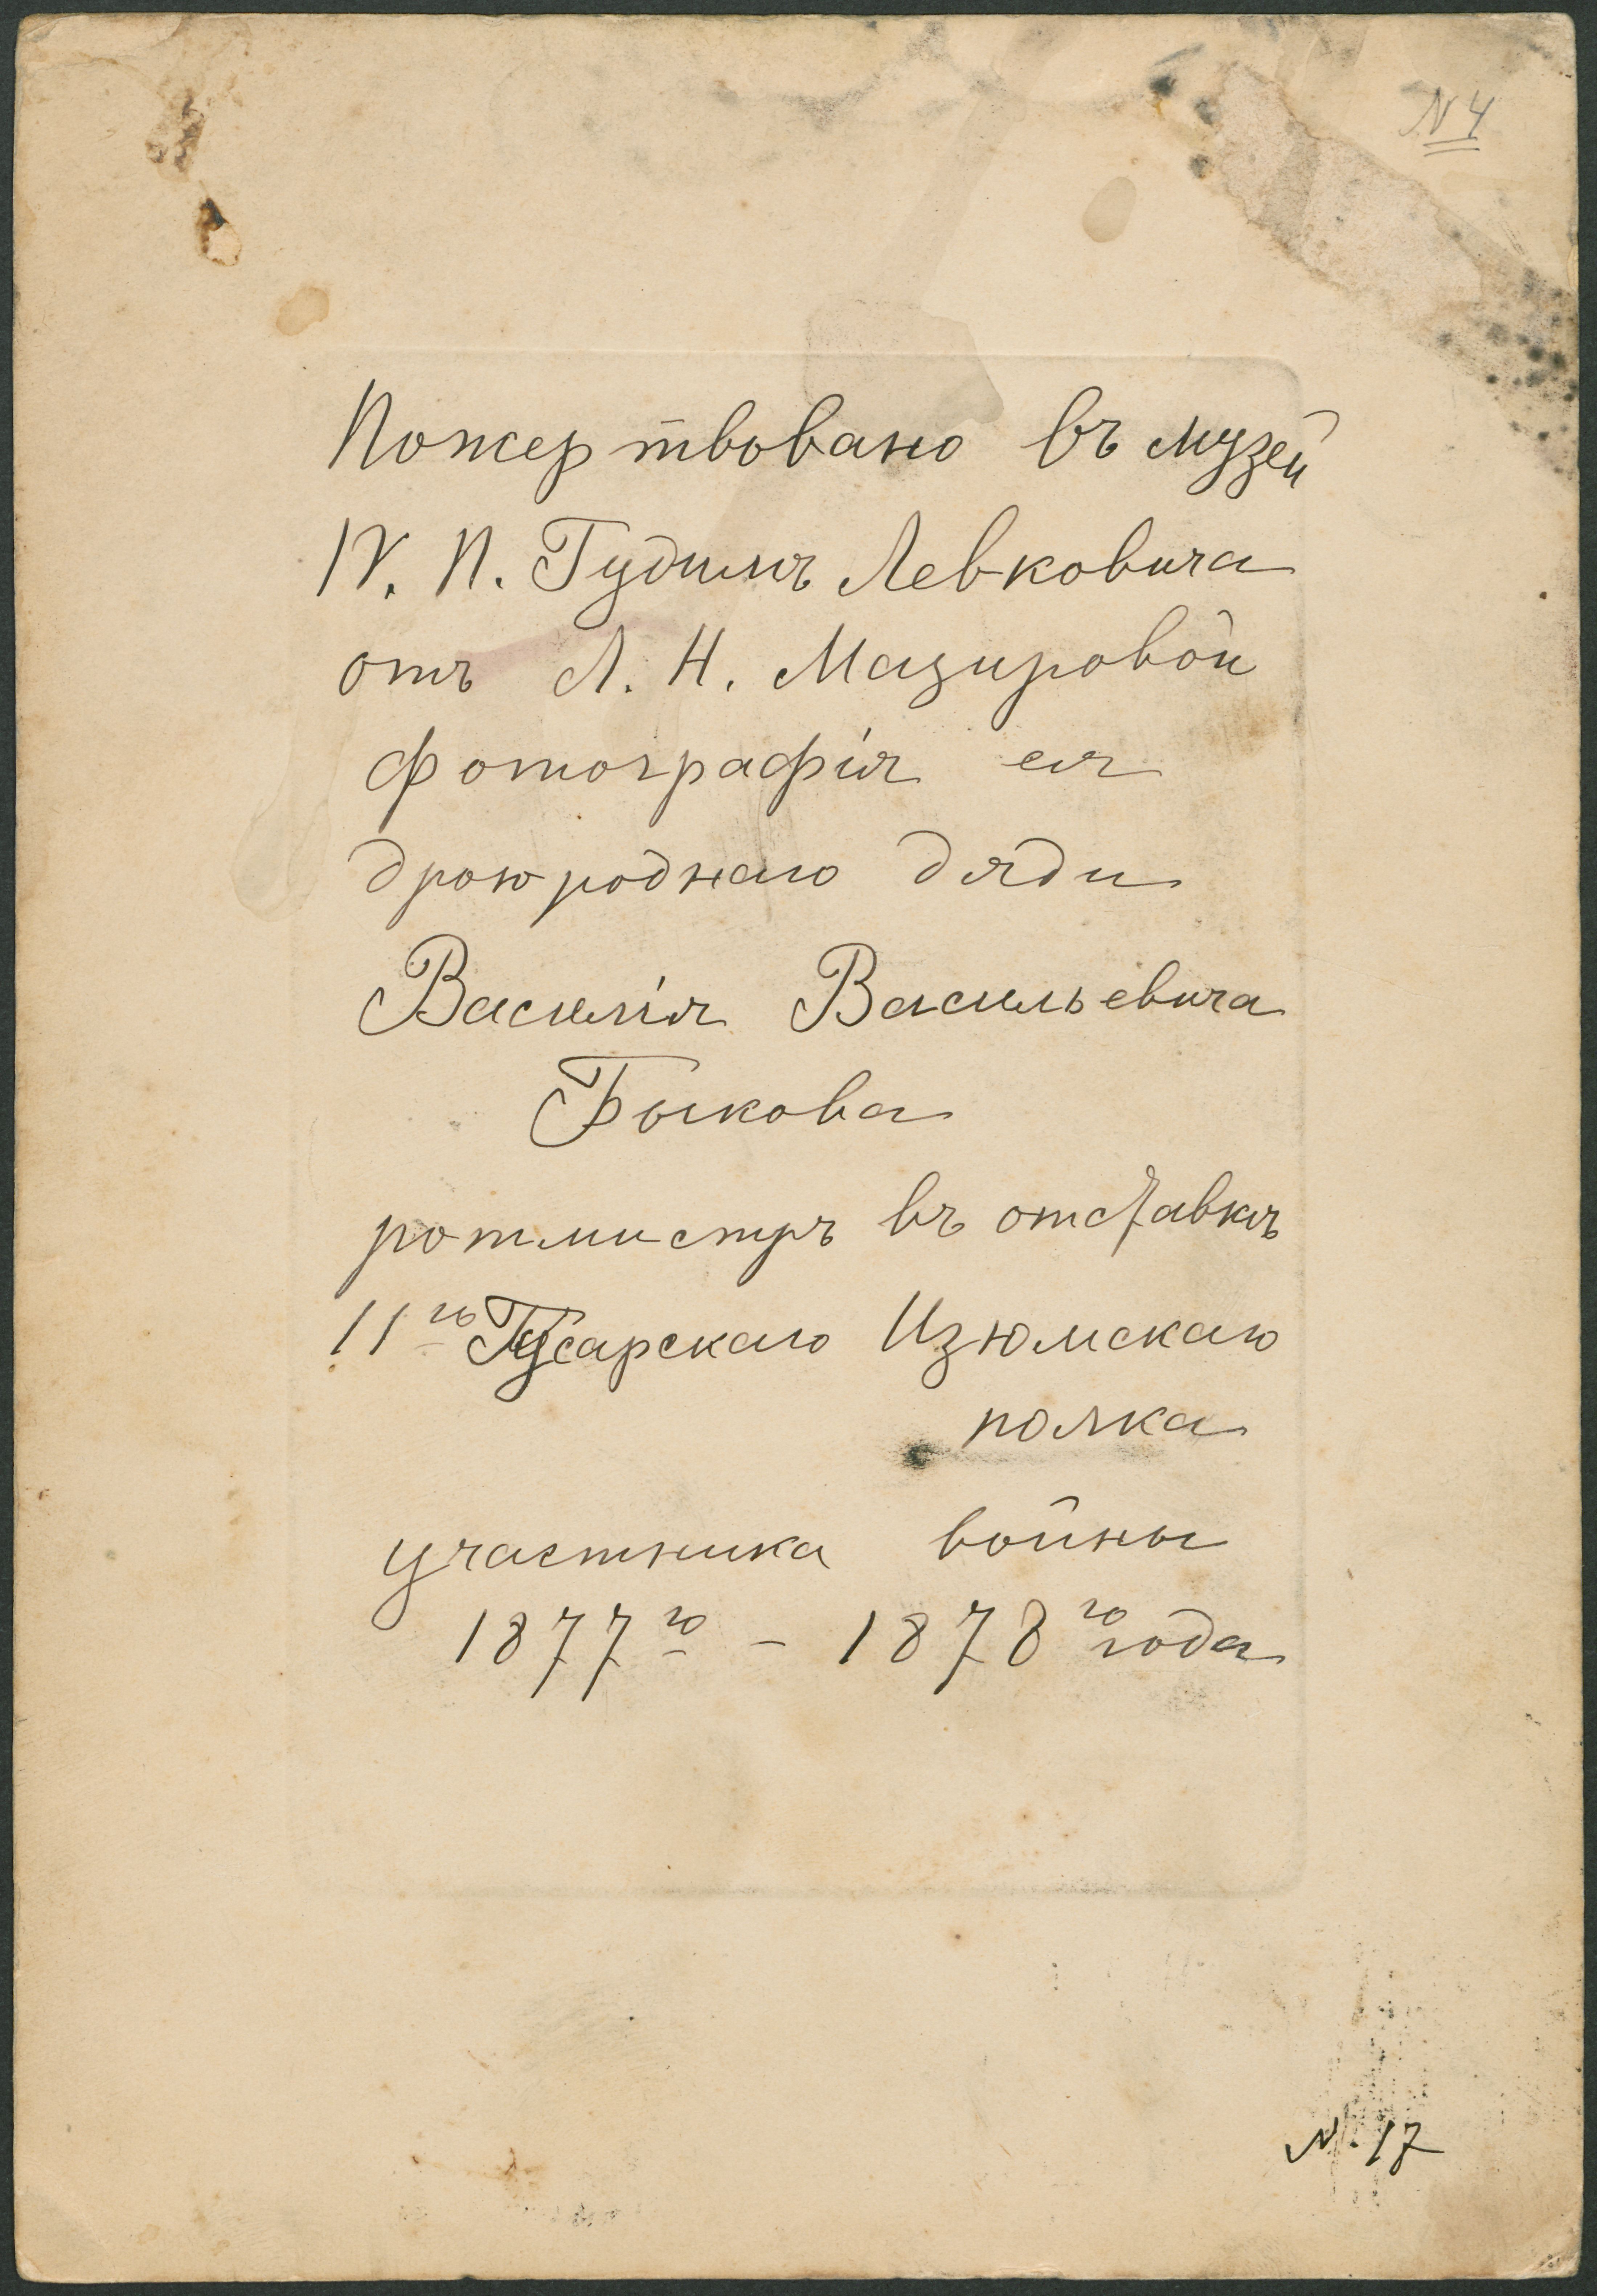 N 4
Пожертвовано въ музей
П. П. Гудимъ Левковича
отъ Л. Н. Мазировой
фотографія ея
дроюроднаго дяди
Василія Васильевича
Быкова
ротмистръ въ отставкъ
11го Гусарскаго Изюмскаго
полка
участника войны
1877го - 1878го года
N. 17